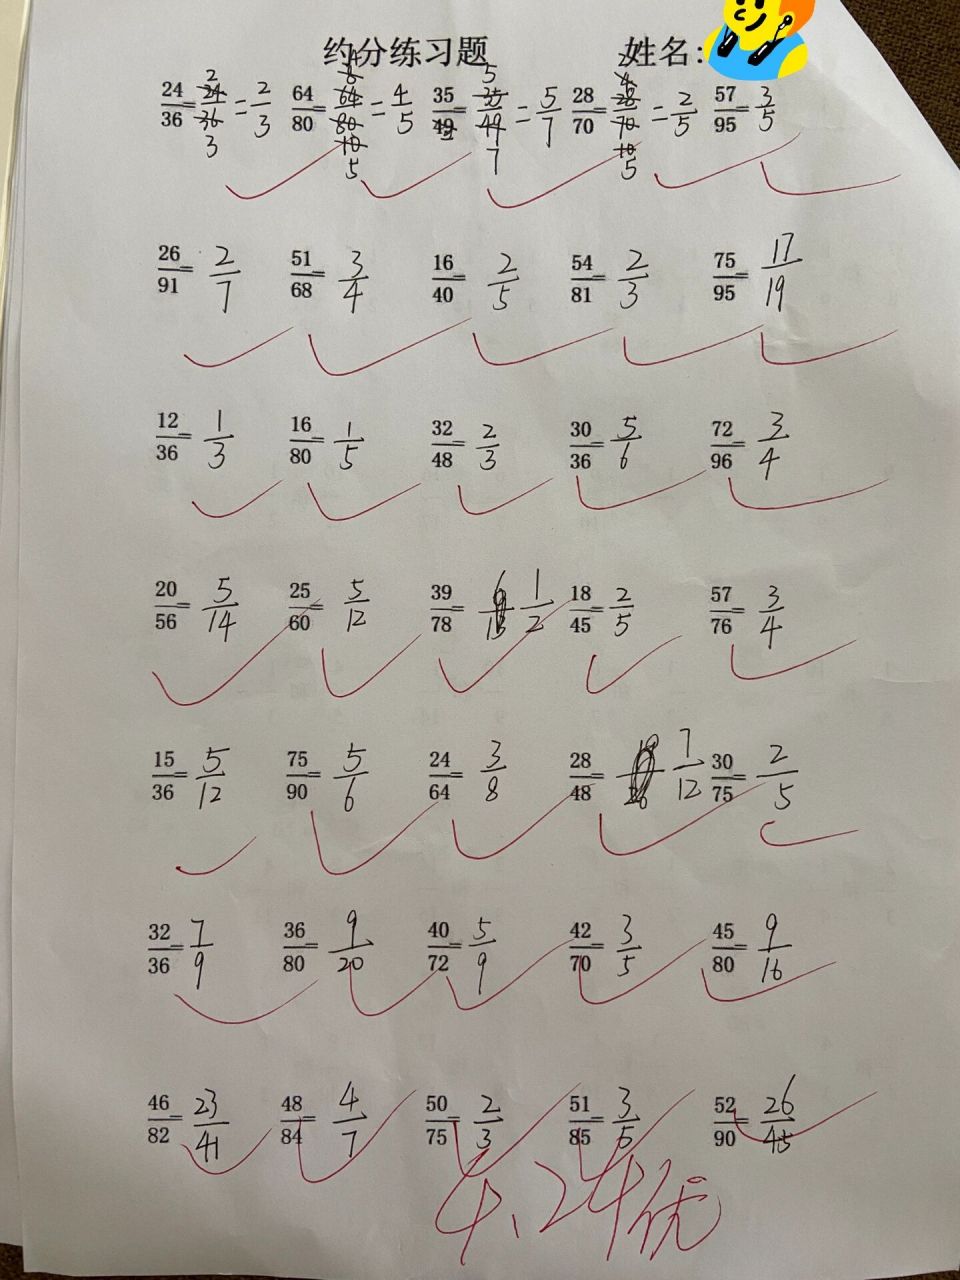 约分练习题 姓名:
24/36=24/36=2/3 64/80=64/80=4/5 35/49=35/49=5/7 28/70=28/70=2/5 57/95=3/5
26/91=2/7 51/68=3/4 16/40=2/5 54/81=2/3 75/95=17/19
12/36=1/3 16/80=1/5 32/48=2/3 30/36=5/6 72/96=3/4
20/56=5/14 25/60=5/12 39/78=1/2 18/45=2/5 57/76=3/4
15/36=5/12 75/90=5/6 24/64=3/8 28/48=7/12 30/75=2/5
32/36=7/9 36/80=9/20 40/72=5/9 42/70=3/5 45/80=9/16
46/82=23/41 48/84=4/7 50/75=2/3 51/85=3/5 52/90=26/45
4、24优